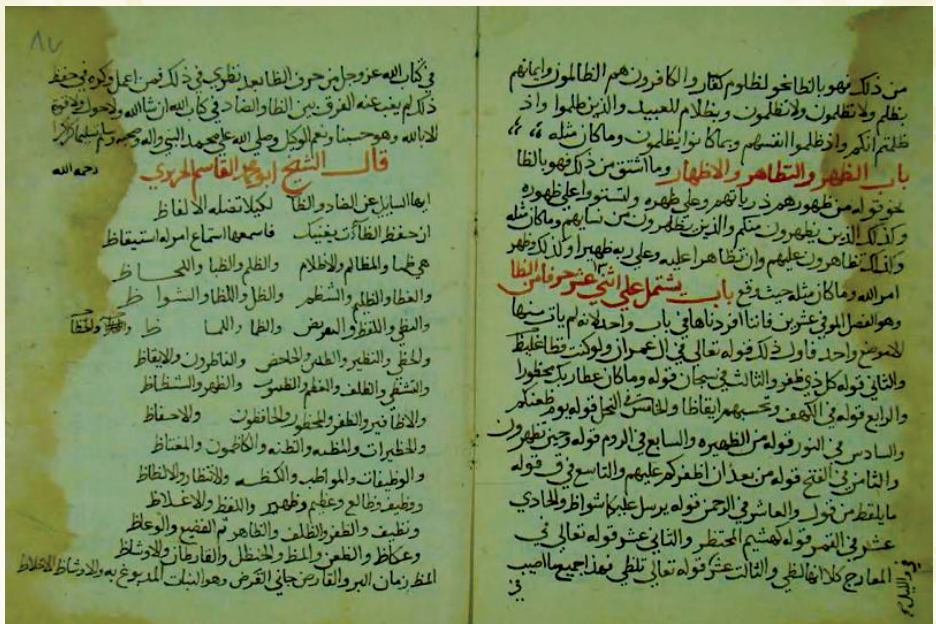 من ذلك فهو بالظا نحو لظلوم كفار والكافرون هم الظالمون وايمانهم
بظلم ولا تظلمون ولا تظلمون وبظلام للعبيد والذين ظلموا واذ
ظلمتم انكم واذ ظلموا انفسهم وبما كانوا يظلمون وما كان مثله
باب الظهر والتظاهر والاظهار وما اشتق من ذلك فهو بالظا
نحو قوله من ظهورهم ذرياتهم وعلى ظهره ولتستووا على ظهوره
وكذلك الذين يظهرون منكم والذين يظهرون من نسايهم وما كان مثله
وكذلك تظاهرون عليهم وان تظاهرا عليه وعلى ربه ظهيرا وكذلك وظهر
امر الله وما كان مثله حيث وقع باب يشتمل على اثني عشر حرفا من الظا
وهو الفصل الموفي عشرين فاننا افردناها في باب واحد لانه لم يات منها
الا موضع واحد فاول ذلك قوله تعالى في ال عمران ولو كنت فظا غليظ
والثاني قوله كل ذي ظفر والثالث في سبحان قوله وما كان عطا ربك محظورا
والرابع قوله في الكهف وتحسبهم ايقاظا والخامس في النحل قوله يوم ظعنكم
والسادس في النور قوله من الظهيره والسابع في الروم قوله وحين تظهرون
والثامن في الفتح قوله من بعد ان اظفركم عليهم والتاسع في ق قوله
ما يلفظ من قول والعاشر في الرحمن قوله يرسل عليكما شواظ والحادي
عشر في القمر قوله كهشيم المحتظر والثاني عشر قوله تعالى في
المعارج كلا انها لظى والثالث عشر قوله تعالى تلظى فهذا جميع ما اصيب
في
في والليل
٨٧
في كتاب الله عز وجل من حرف الظا بعد نظري في ذلك فمن اعمل فكره في حفظ
ذلك لم يغب عنه الفرق بين الظا والضاد في كتاب الله ان شا الله ولا حول ولا قوة
الا بالله وهو حسبنا ونعم الوكيل وصلى الله على محمد النبي واله وصحبه وسلم تسليما
قال الشيخ ابو محمد القاسم الحريري رحمه الله
ايها السايل عن الضاد والظا لكيلا تضله الالفاظ
ان حفظ الظاآت يغنيك فاسمعها استماع امرء له استيقاظ
هي ظميا والمظالم والاظلام والظلم والظبا واللحاظ
والعظا والظليم والشيظم والظل واللظا والشواظ
والتظني واللفظ والتقريض والقيظ والظما واللماظ
والحظى والنظير والظئر والجاحظ والناظرون والايقاظ
والتشظي والظلف والعظم والظنبوب والظهر والشظاظ
والاظافير والمظفر والمحظور والحافظون والاحفاظ
والحظيرات والمظنه والظنه والكاظمون والمغتاظ
والوظيفات والمواظب والكظه والانتظار والالظاظ
ووظيف وظالع وعظيم وظهير والفظ والاغلاظ
ونظيف والظرف والظلف والظاهر ثم الفظيع والوعاظ
وعكاظ والظعن والمظ والحنظل والقارظان والاوشاظ
المظ رمان البر والقارظ جاني القرظ وهو النبات المدبوغ به والاوشاظ الاخلاط